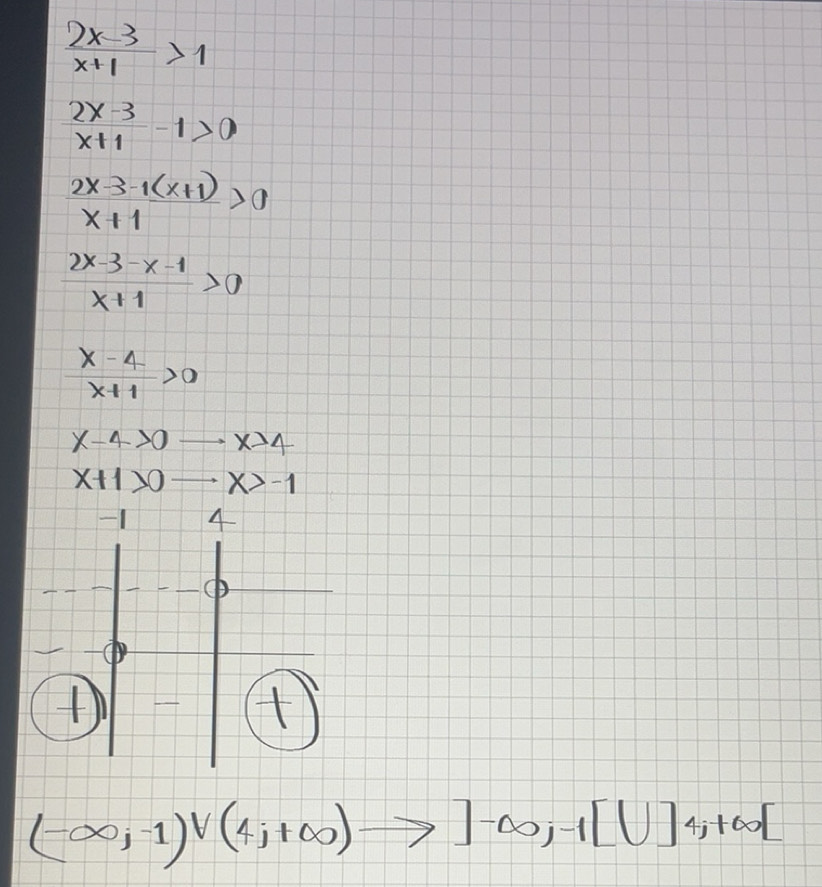 (2x-3)/(x+1) > 1
(2x-3)/(x+1) - 1 > 0
(2x-3-1(x+1))/(x+1) > 0
(2x-3-x-1)/(x+1) > 0
(x-4)/(x+1) > 0
x-4>0 → x>4
x+1>0 → x>-1
-1 4
+ - +
(-∞;-1) ∨ (4;+∞) → ]-∞;-1[ ∪ ]4;+∞[